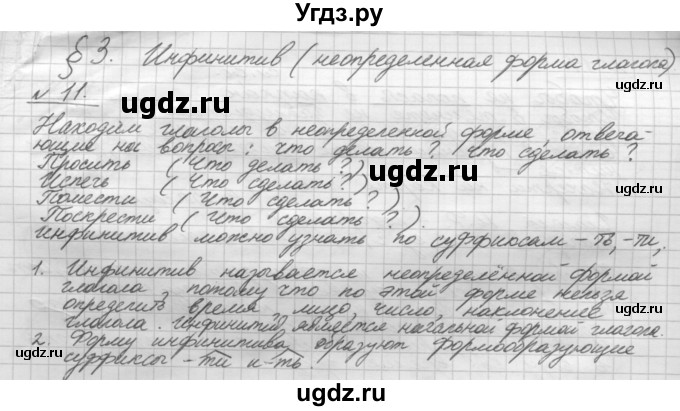 Угдз.ру
§ 3. Инфинитив (неопределенная форма глагола)
№ 11.
ugdz.ru ugdz.ru
Находим глаголы в неопределенной форме, отвеча-
ющие на вопросы: что делать? Что сделать?
Просить (Что делать?)
ugdz.ru
Испечь (Что сделать?)
Помести (Что сделать?)
Поскрести (Что сделать?).
Инфинитив можно узнать по суффиксам -ть, -ти,
1. Инфинитив называется неопределённой формой
глагола, потому что по этой форме нельзя
определить время, лицо, число, наклонение
глагола. Инфинитив является начальной формой глагола.
ugdz.ru ugdz.ru
2. Форму инфинитива образуют формообразующие
суффиксы -ти и -ть.
ugdz.ru